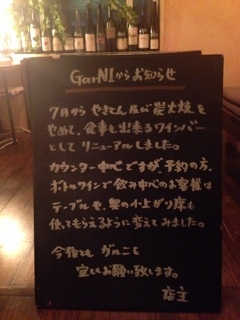 GarNIからお知らせ
7月から やきとん 及び 炭火焼を
やめて、食事も出来るワインバー
として リニューアルしました。
カウンター中心ですが、予約の方、
ボトルワインで飲み中心のお客様は
テーブルや、奥の小上がり席も
使ってもらえるように変えてみました。
今後とも ガルニを
宜しくお願い致します。
店主